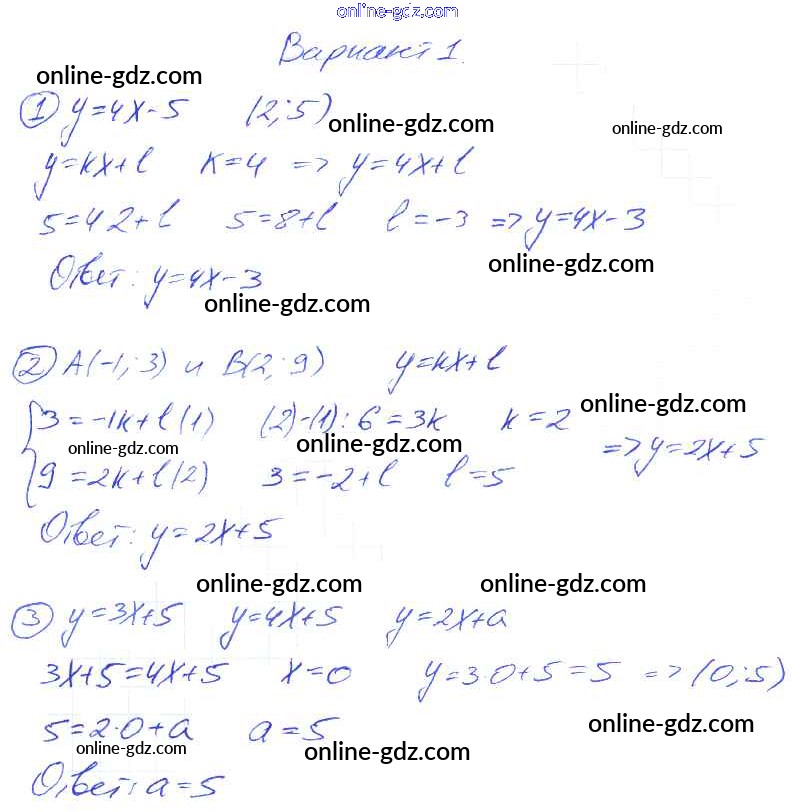 online-gdz.com
Вариант 1.
online-gdz.com
① y=4x-5 (2;5)
online-gdz.com
online-gdz.com
y=kx+l k=4 => y=4x+l
5=4·2+l 5=8+l l=-3 => y=4x-3
online-gdz.com
Ответ: y=4x-3
online-gdz.com
② A(-1;3) и B(2;9) y=kx+l
online-gdz.com
{3=-1k+l (1) (2)-(1): 6=3k k=2
online-gdz.com
online-gdz.com
=> y=2x+5
9=2k+l (2) 3=-2+l l=5
Ответ: y=2x+5
online-gdz.com
online-gdz.com
③ y=3x+5 y=4x+5 y=2x+a
3x+5=4x+5 x=0 y=3·0+5=5 => (0;5)
online-gdz.com
5=2·0+a a=5
online-gdz.com
online-gdz.com
Ответ: a=5